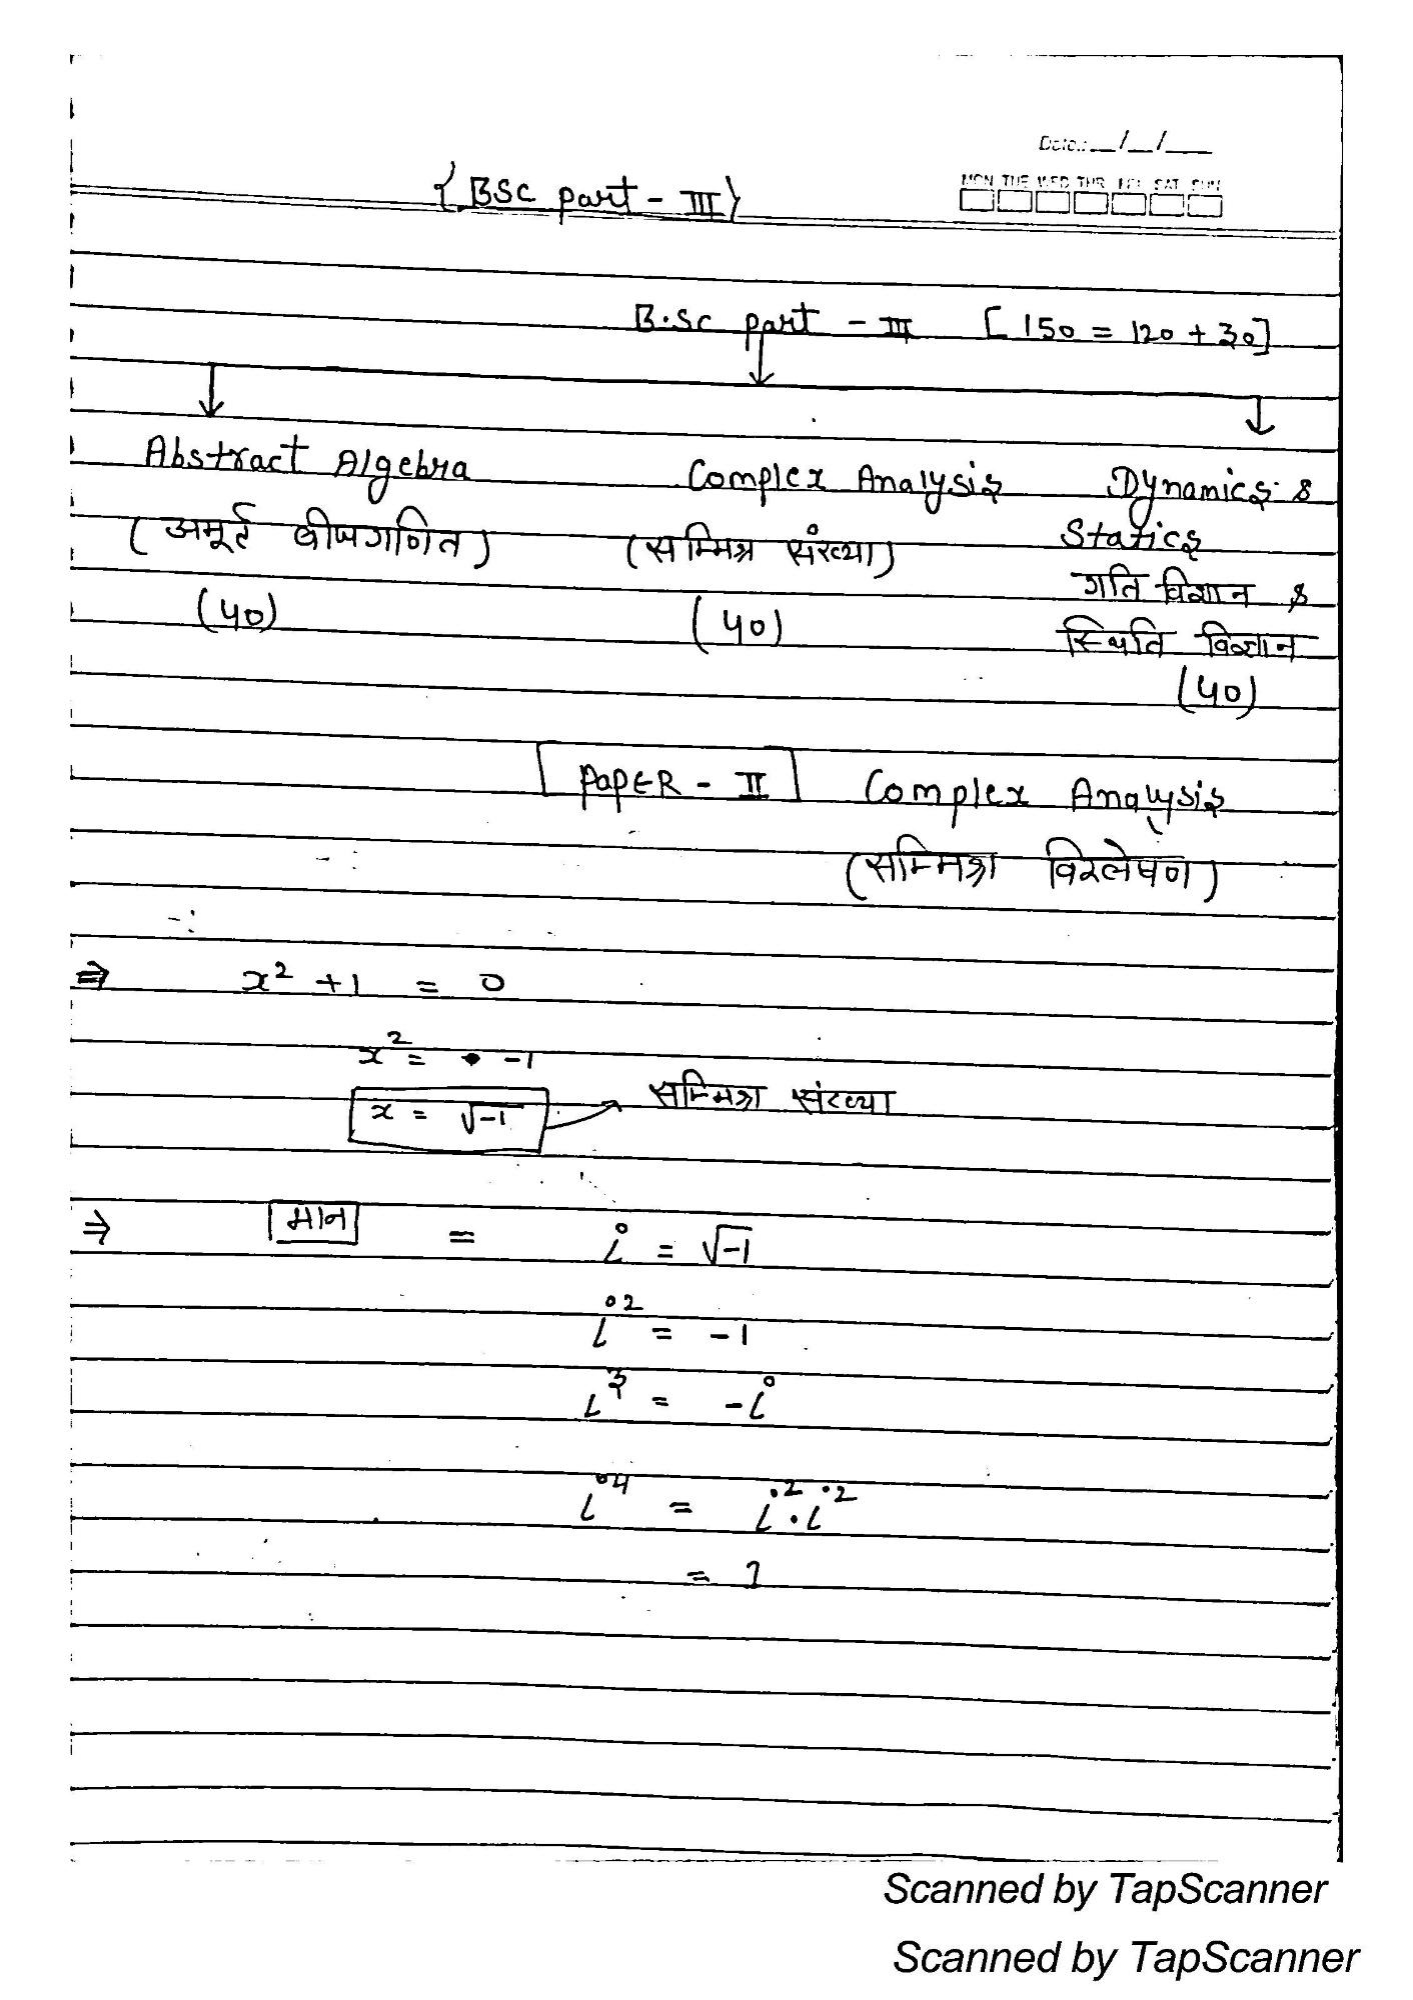 Date.:__/__/___
MON TUE WED THR FRI SAT SUN
{BSc part - III}
B.Sc part - III [150 = 120 + 30]
Abstract Algebra
(अमूर्त बीजगणित)
(40)
Complex Analysis
(सम्मिश्र संख्या)
(40)
Dynamics &
Statics
गति विज्ञान &
स्थिति विज्ञान
(40)
PAPER - II Complex Analysis
(सम्मिश्र विश्लेषण)
⇒ x² + 1 = 0
x² = -1
x = √-1 → सम्मिश्र संख्या
⇒ मान = i = √-1
i² = -1
i³ = -i
i⁴ = i² . i²
= 1
Scanned by TapScanner
Scanned by TapScanner